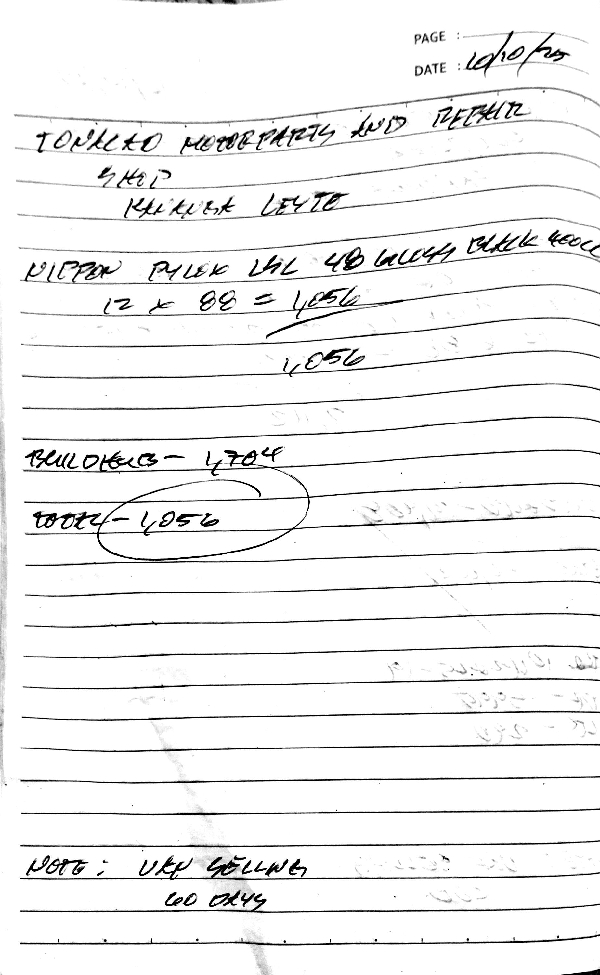 PAGE :
DATE : 10/10/25
TONACAO MOTORPARTS AND REPAIR
SHOP
KANANGA LEYTE
NIPPON PYLOX LZL 48 GLOSS BLACK 400CC
12 x 88 = 1,056
1,056
BUILDERS - 1,704
TOTAL - 1,056
NOTE : VAN SELLING
60 DAYS